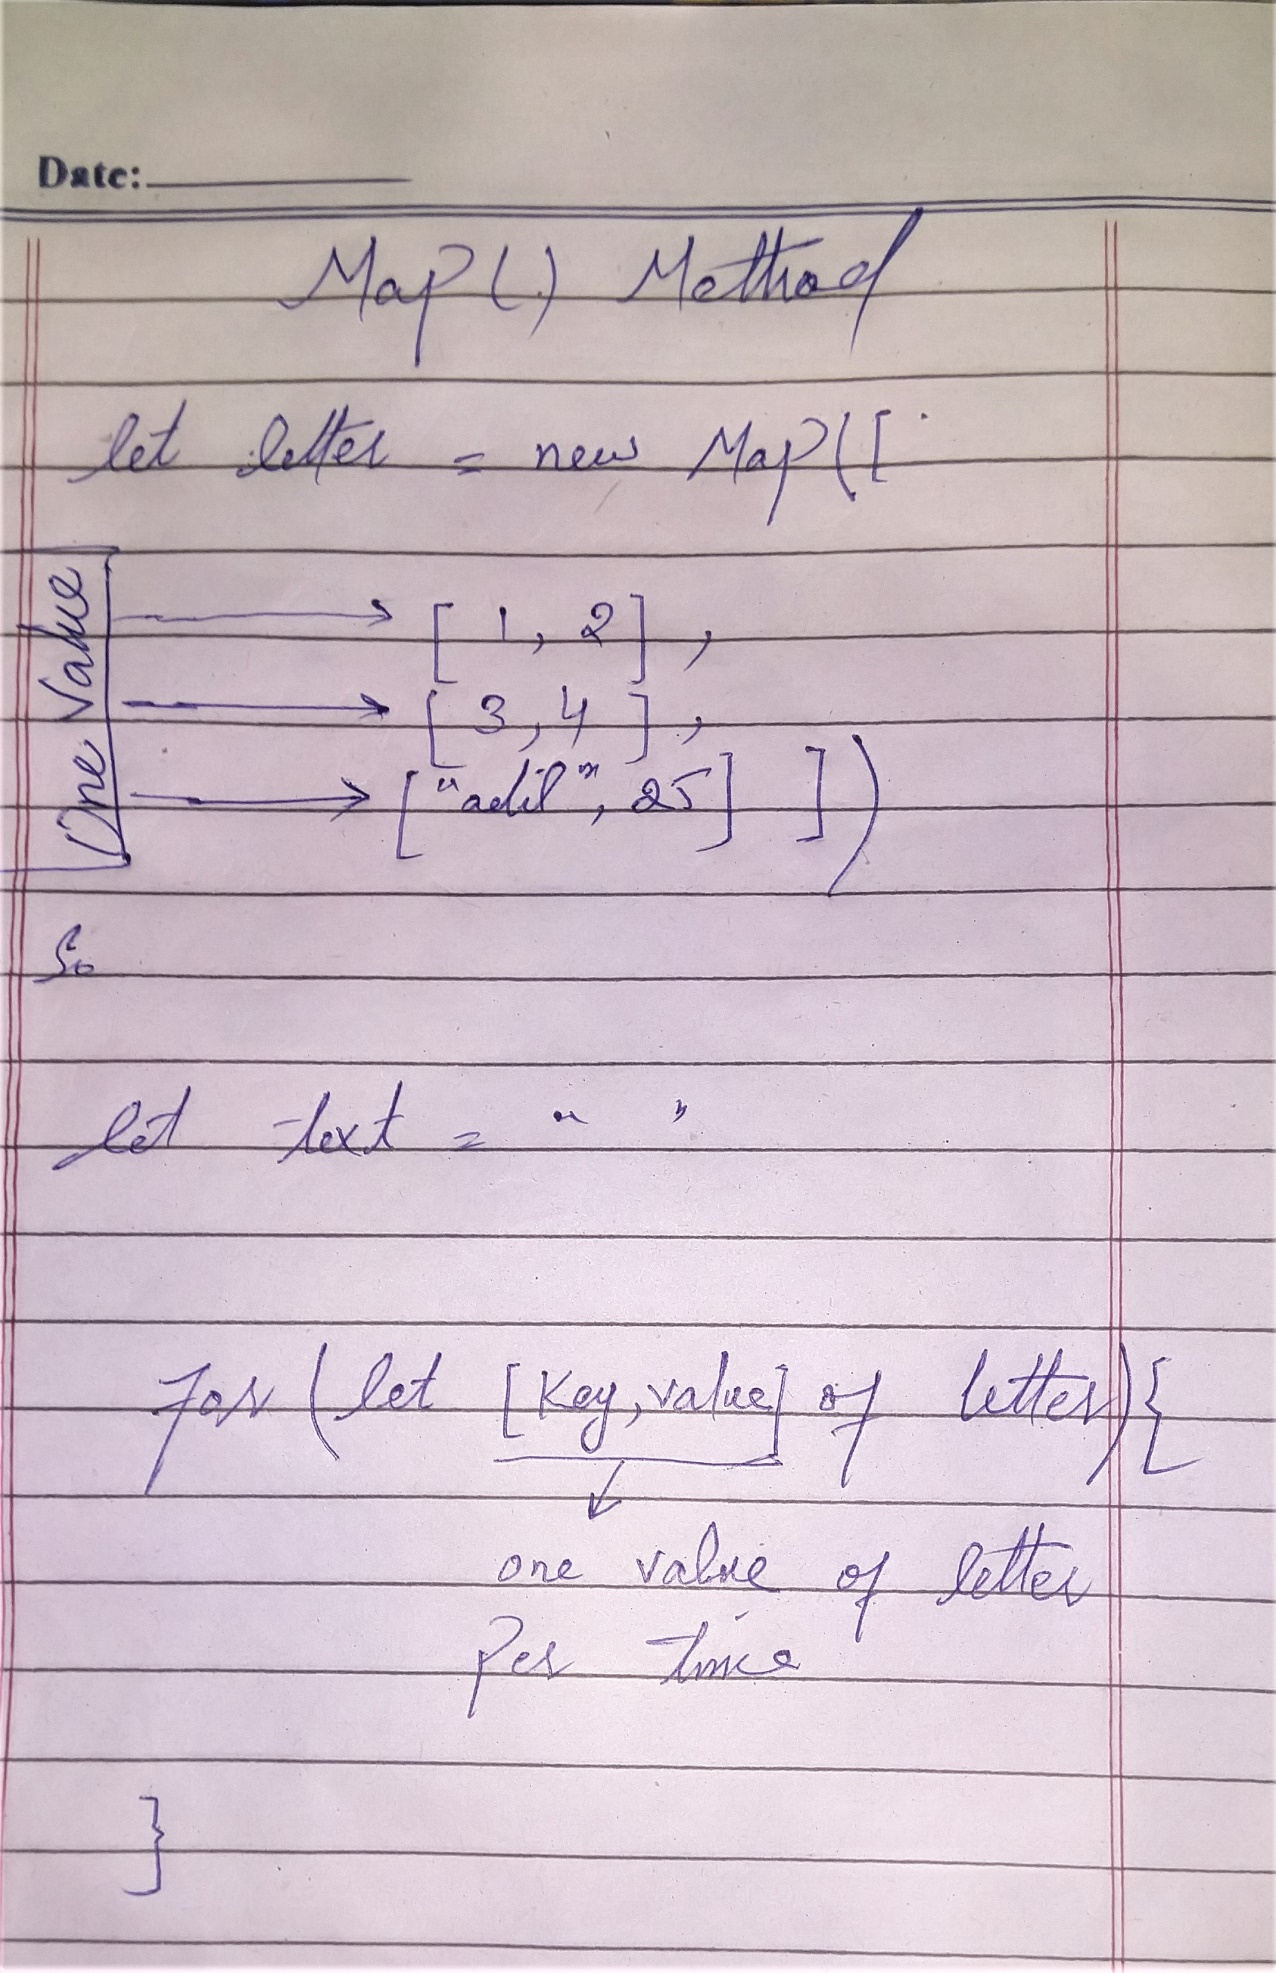 Date:
Map() Method
let letter = new Map([
One Value
[ 1, 2 ],
[ 3, 4 ],
["adil", 25] ])
So
let text = " "
for (let [Key, value] of letter) {
one value of letter
Per time
}